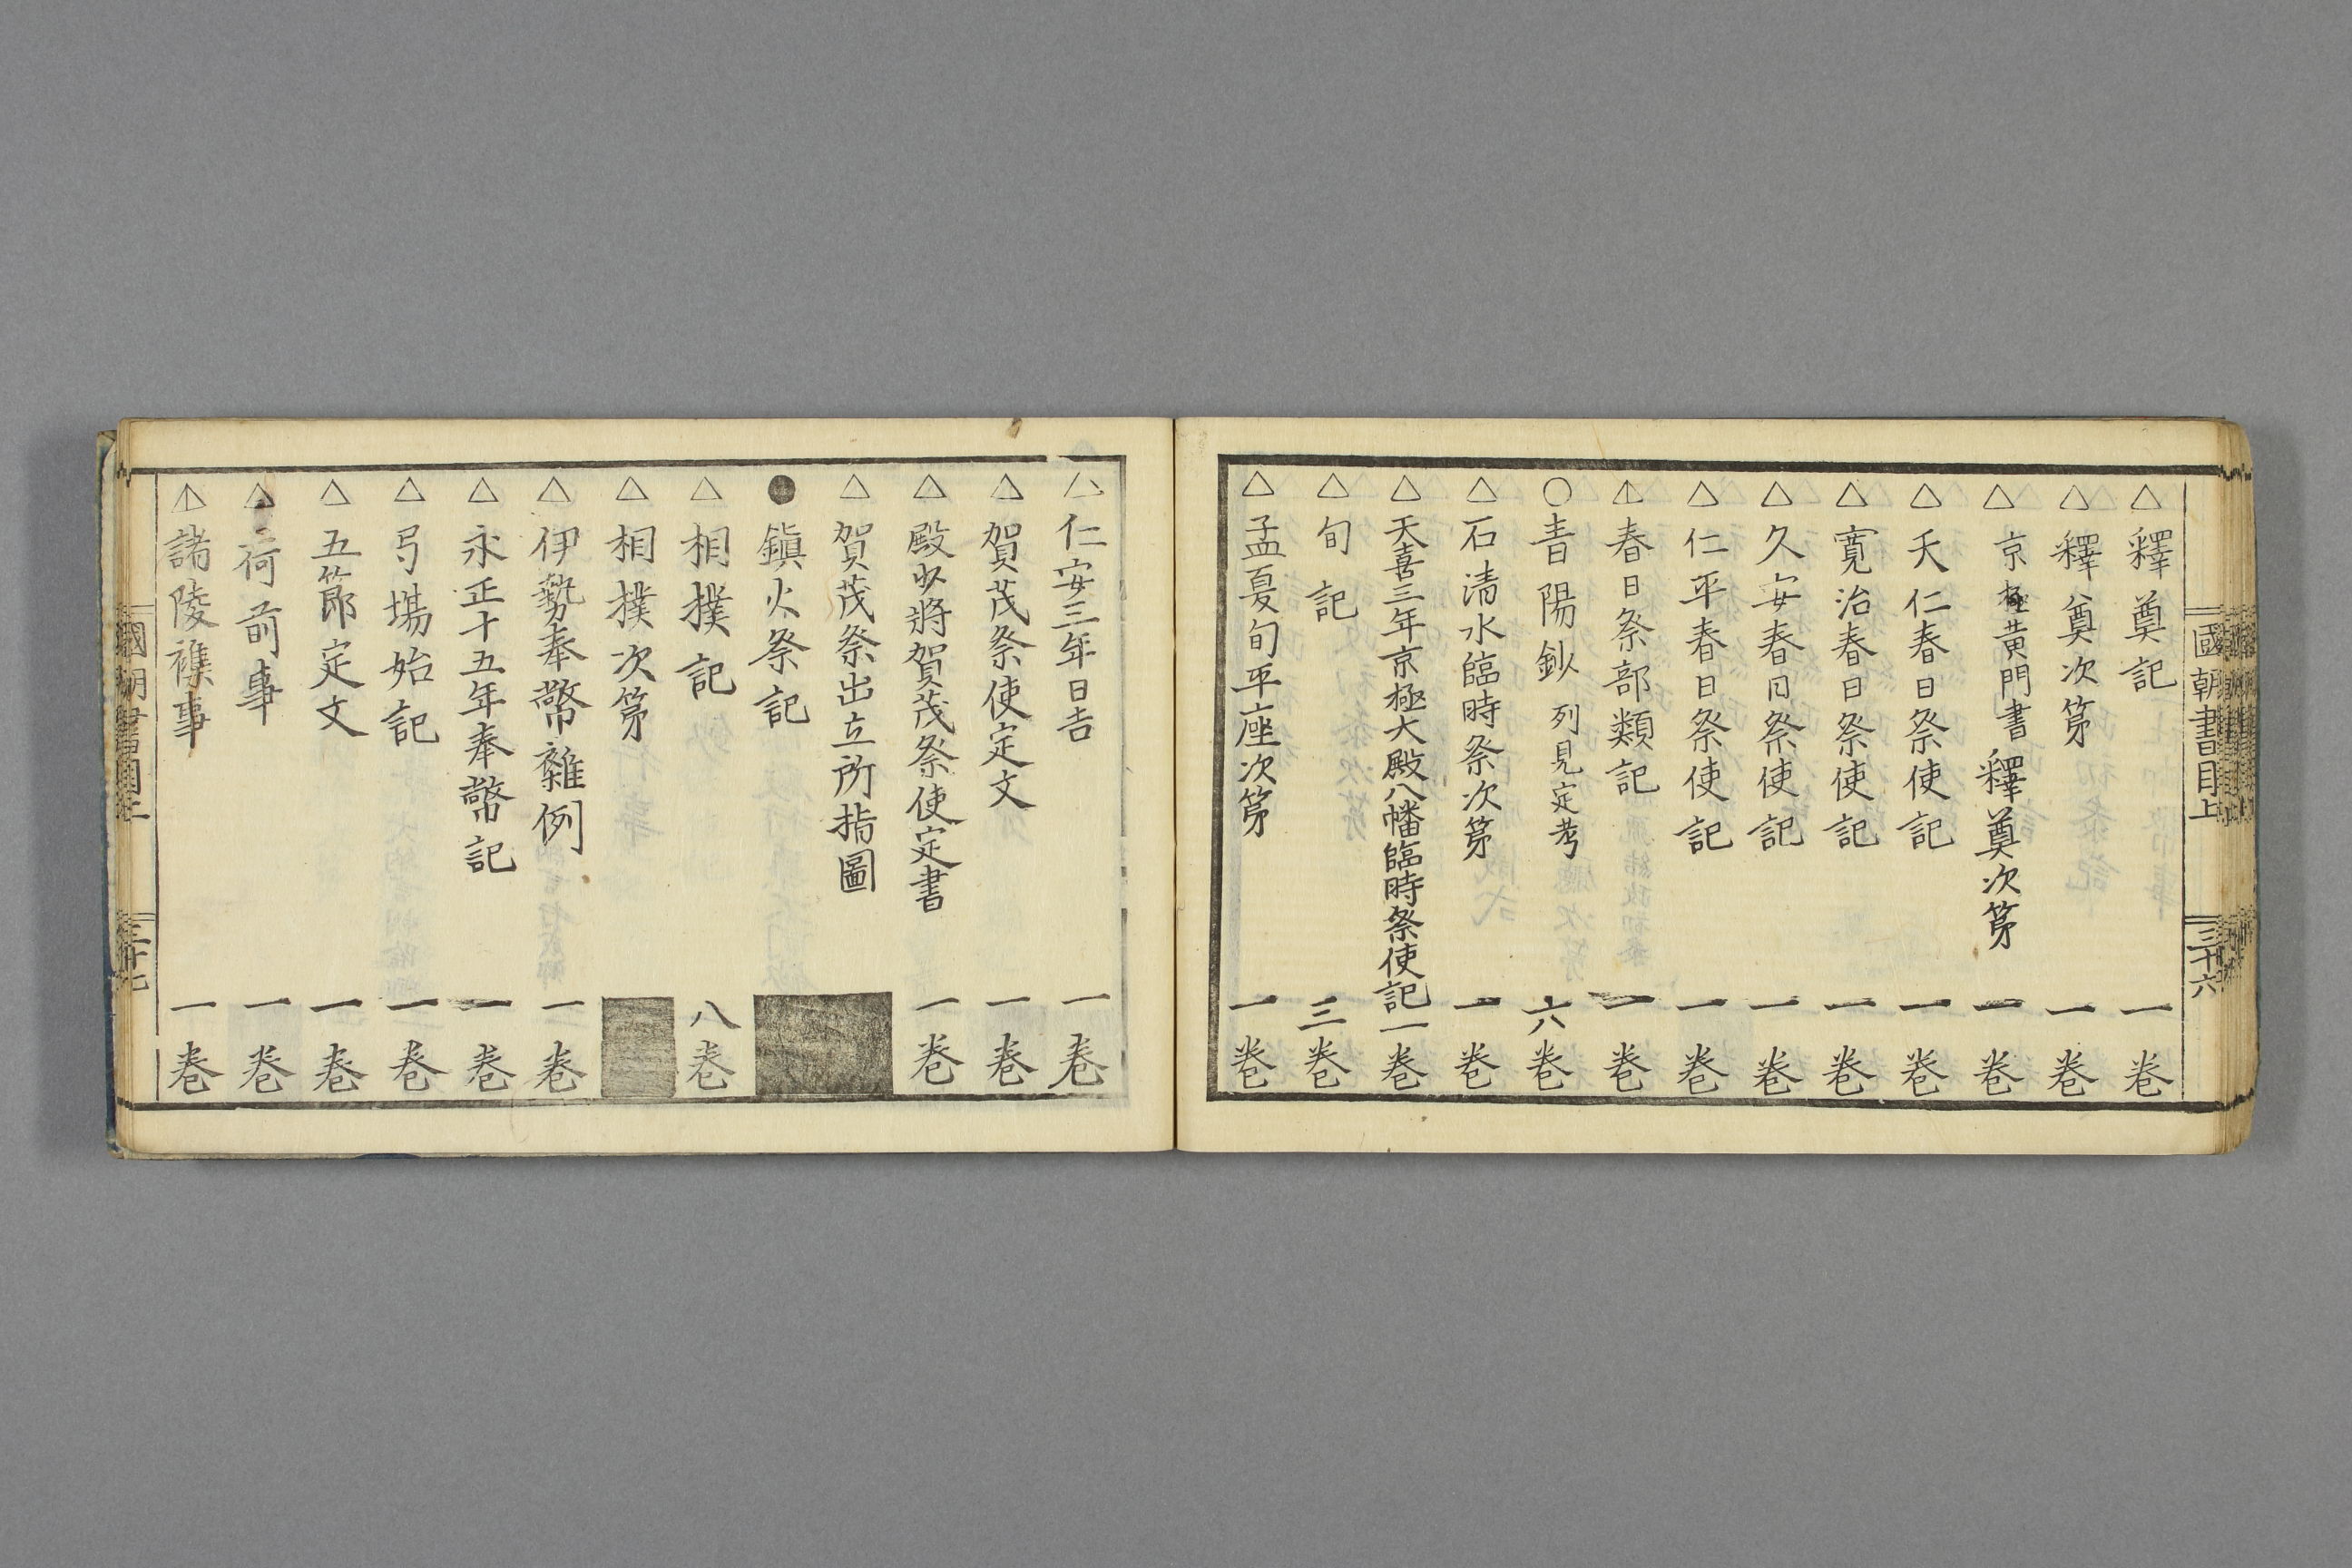 國朝書目上 三十六
△釋奠記 一巻
△釋奠次第 一巻
△京極黄門書釋奠次第 一巻
△天仁春日祭使記 一巻
△寛治春日祭使記 一巻
△久安春日祭使記 一巻
△仁平春日祭使記 一巻
△春日祭部類記 一巻
○青陽鈔 列見定考 六巻
△石清水臨時祭次第 一巻
△天喜三年京極大殿八幡臨時祭使記 一巻
△旬記 三巻
△孟夏旬平座次第 一巻
△仁安三年日吉 一巻
△賀茂祭使定文 一巻
△殿少將賀茂祭使定書 一巻
△賀茂祭出立所指圖
●鎮火祭記
△相撲記 八巻
△相撲次第
△伊勢奉幣雜例 一巻
△永正十五年奉幣記 一巻
△弓場始記 一巻
△五節定文 一巻
△荷前事 一巻
△諸陵襍事 一巻
國朝書目上 三十七